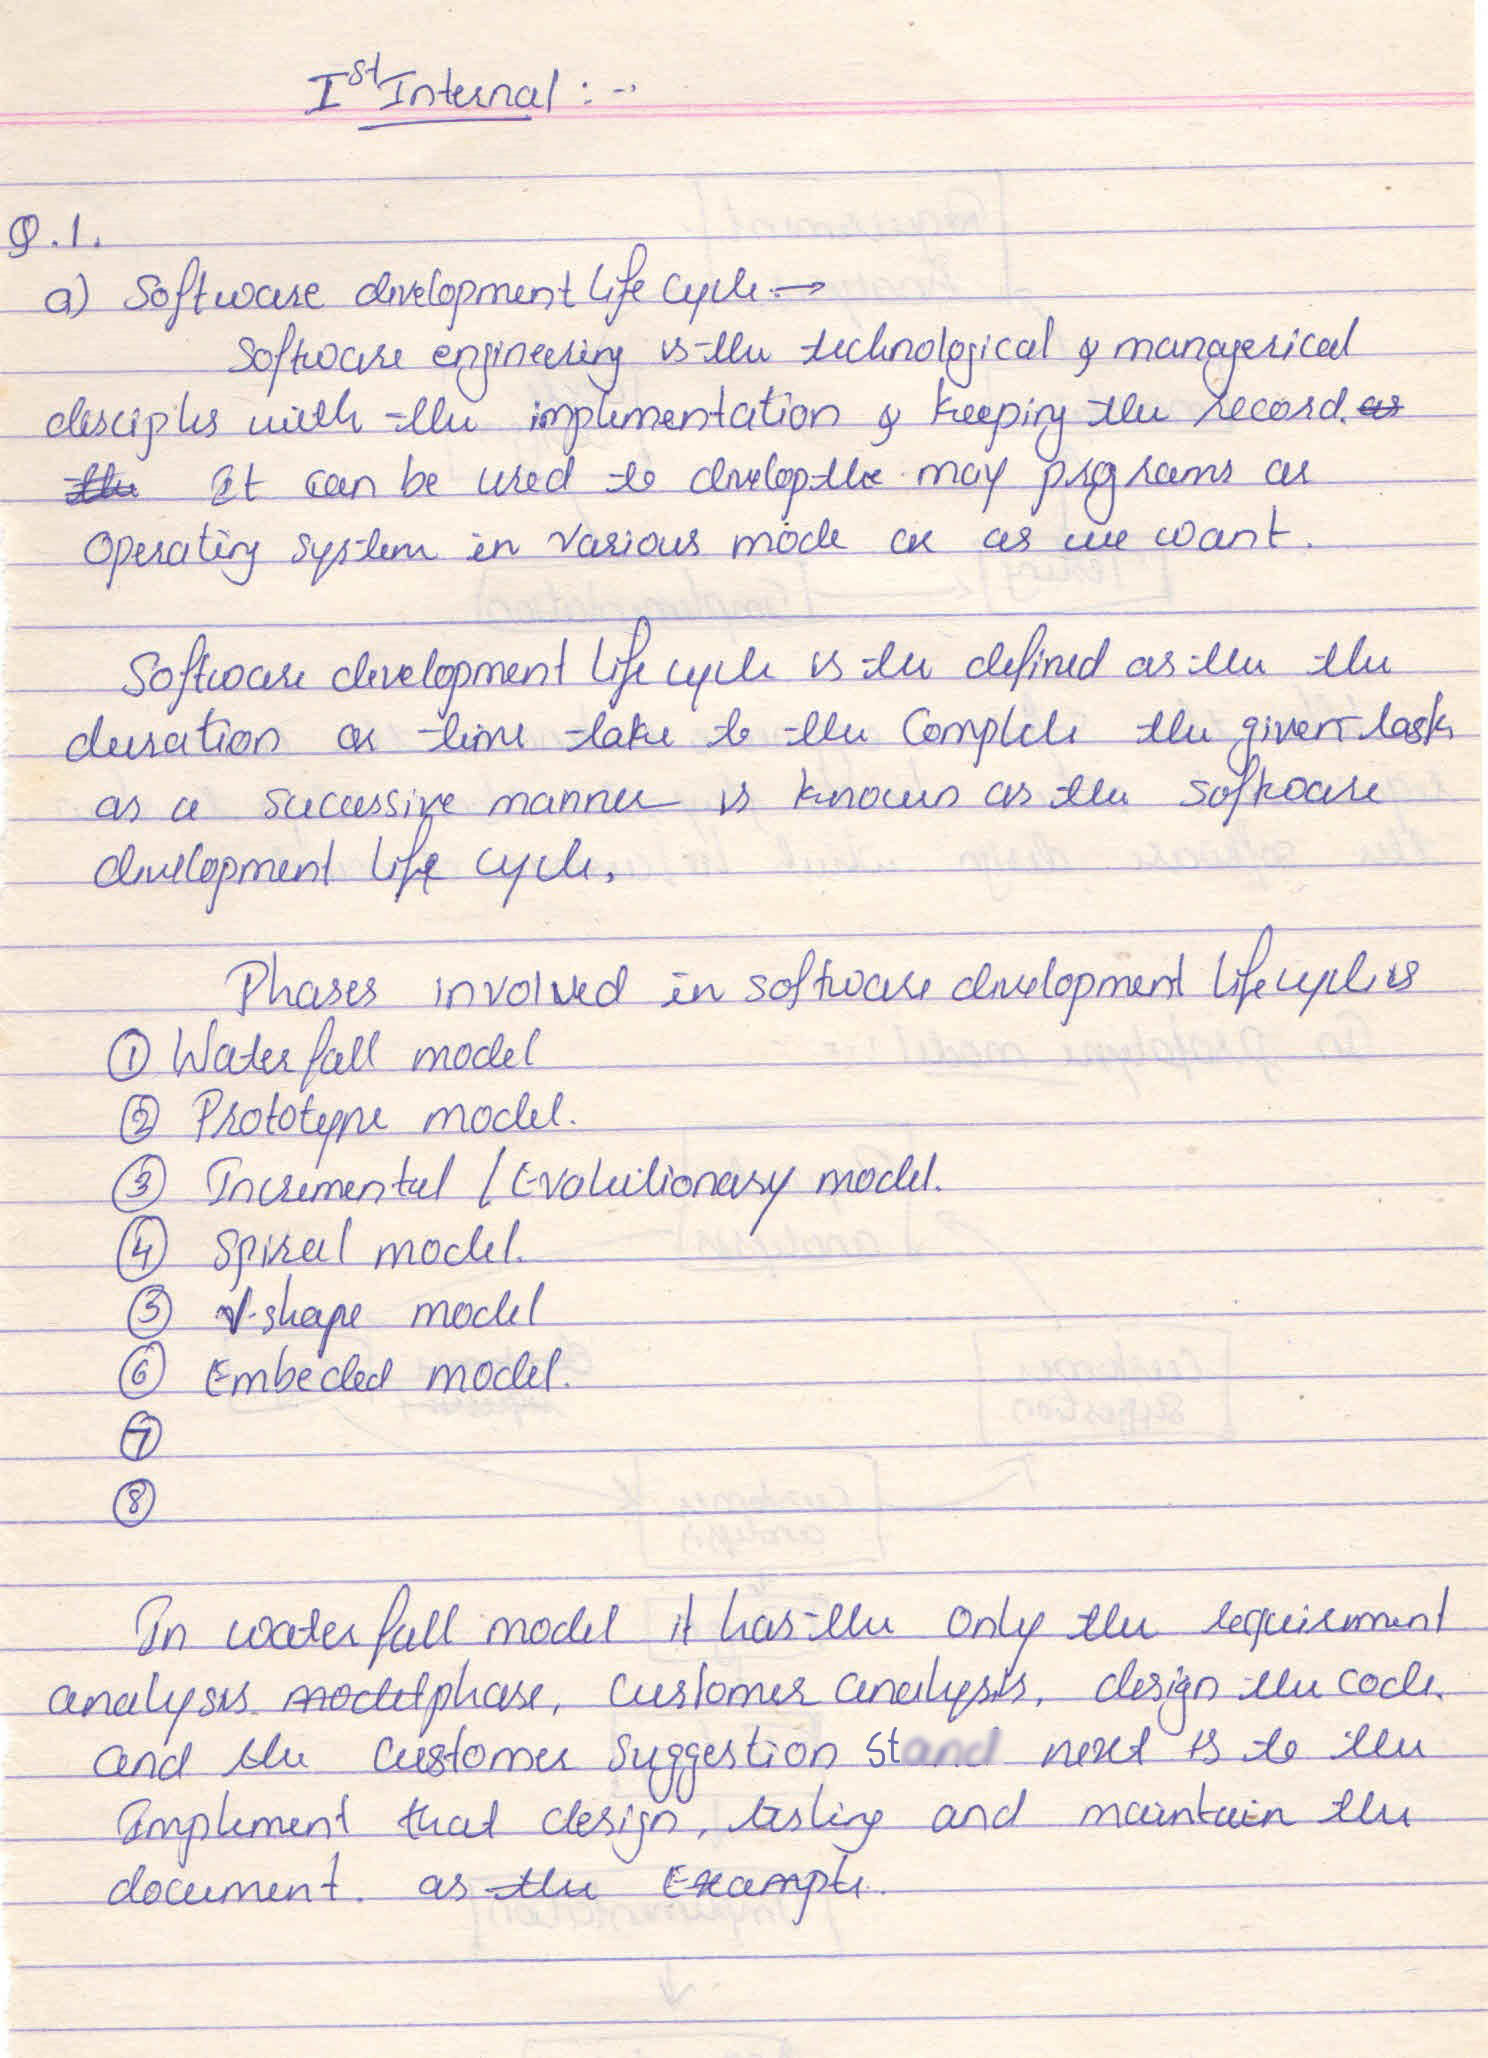 Ist Internal :-
Q.1.
a) Software development life cycle →
Software engineering is the technological & managerical
disciples with the implementation & keeping the record. as
the It can be used to develop the may programs or
Operating system in various mode or as we want.
Software development life cycle is the defined as the the
duration or time take to the Complete the given task
as a successive manner is known as the software
development life cycle,
Phases involved in software development life cycle is
① Water fall model
② Prototype model.
③ Incremental / Evolutionary model.
④ Spiral model.
⑤ V-shape model
⑥ Embeded model.
⑦
⑧
In water fall model it has the only the requirement
analysis model phase, customer analysis, design the code.
and the customer suggestion next is to the
Implement that design, testing and maintain the
document. as the Example.